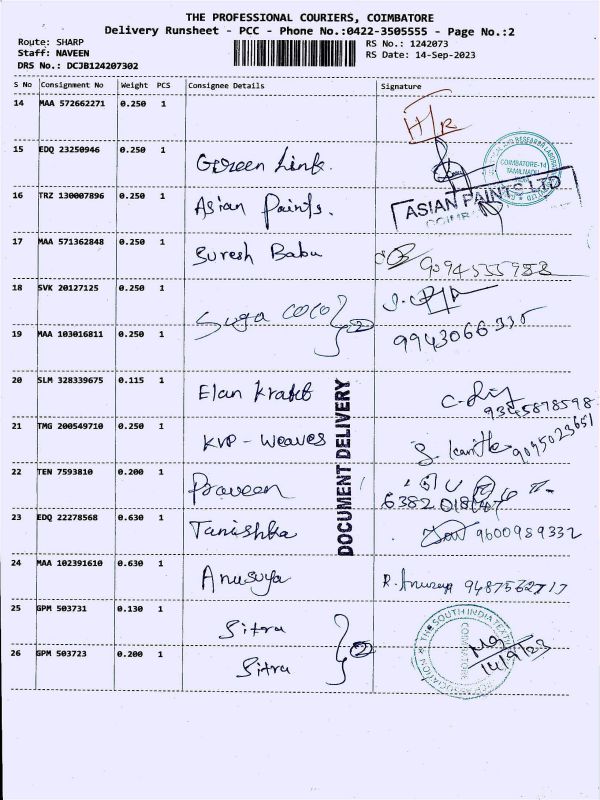 THE PROFESSIONAL COURIERS, COIMBATORE
Delivery Runsheet - PCC - Phone No.:0422-3505555 - Page No.:2
Route: SHARP
Staff: NAVEEN
DRS No.: DCJB124207302
RS No.: 1242073
RS Date: 14-Sep-2023
S No Consignment No Weight PCS Consignee Details Signature
14 MAA 572662271 0.250 1
15 EDQ 23250946 0.250 1 Green Link.
COIMBATORE-14
TAMILNADU
16 TRZ 130007896 0.250 1 Asian Paints. ASIAN PAINTS LTD
17 MAA 571362848 0.250 1 Suresh Babu
18 SVK 20127125 0.250 1
Suga COCO 2
19 MAA 103016811 0.250 1 9943066335
20 SLM 328339675 0.115 1 Elan Kraft 9345878598
21 TMG 200549710 0.250 1 KVP - Weaves
22 TEN 7593810 0.200 1 Praveen
23 EDQ 22278568 0.630 1 Tanishka 9600989332
24 MAA 102391610 0.630 1 Anusuya
25 GPM 503731 0.130 1 Sitra
2
26 GPM 503723 0.200 1 Sitra
DOCUMENT DELIVERY
THE SOUTH INDIA TEXTILE
COIMBATORE
14/9/23